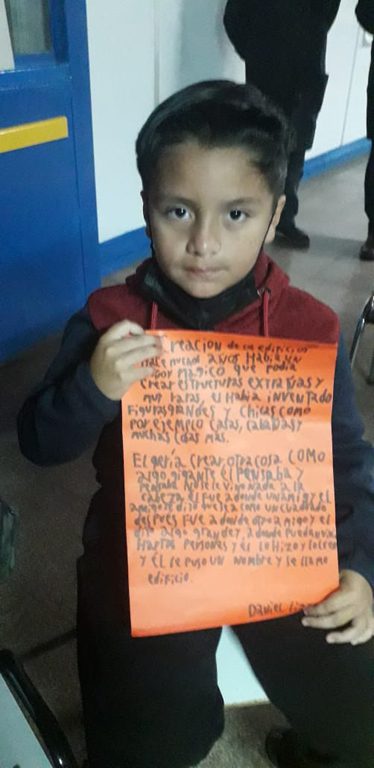 Creacion de los edificios
Hace muchos años Había un
boy magico que podia
crear estructuras extrañas y
muy raras. el Había inventado
Figuras grandes y chicas como
por ejemplo casas, cabañas y
muchas cosas mas.
El qería crear otra cosa como
algo gigante el pensaba y
pensaba no se le vino nada a la
cabeza el fue a donde un amigo y el
amigo le dijo que sea como un cuadrado
despues fue a donde otro amigo y el
dijo algo grande y a donde puedan ir
Hartas personas y el lo Hizo y lo creo
y El le puso un nombre y se llamo
edificio.
Daniel